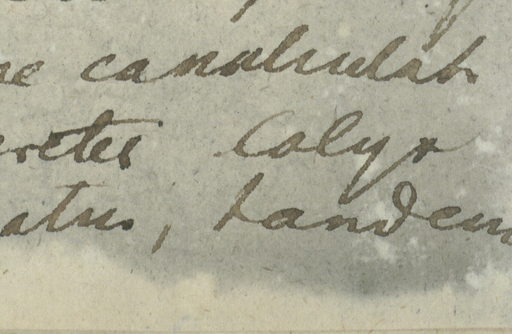 ne canaliculati
eretes Calyx
atus, tandem